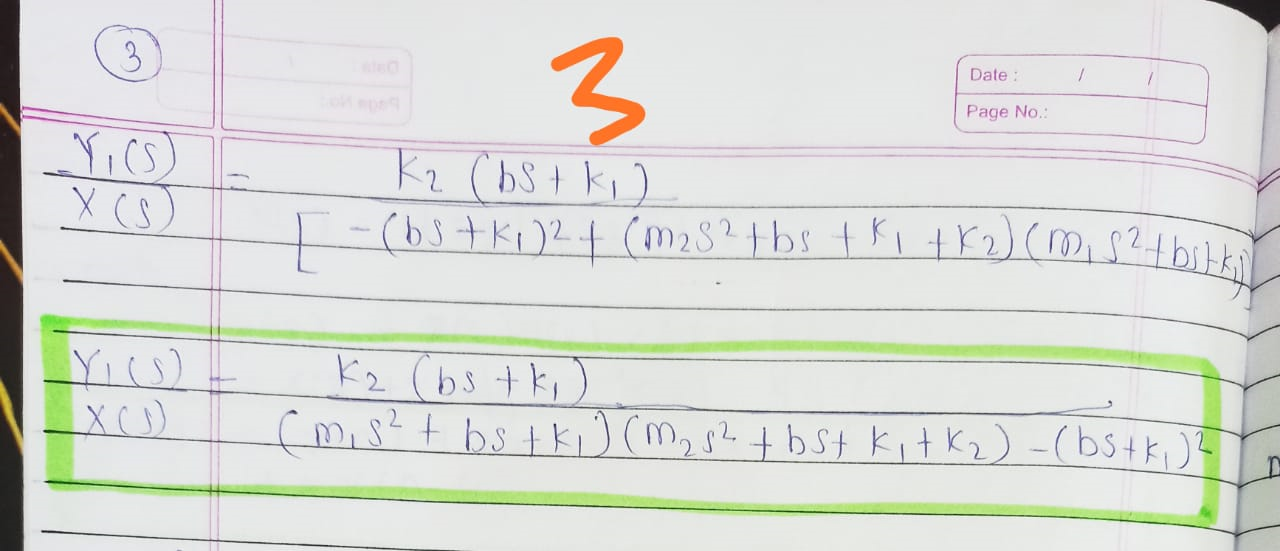 3
3
Date : / /
Page No.:
Y₁(S) / X(S) = K₂ (bS + K₁) / [ -(bs + K₁)² + (m₂s² + bs + K₁ + K₂) (m₁s² + bs + K₁)
Y₁(S) / X(S) = K₂ (bs + K₁) / (m₁s² + bs + K₁) (m₂s² + bs + K₁ + K₂) - (bs + K₁)²